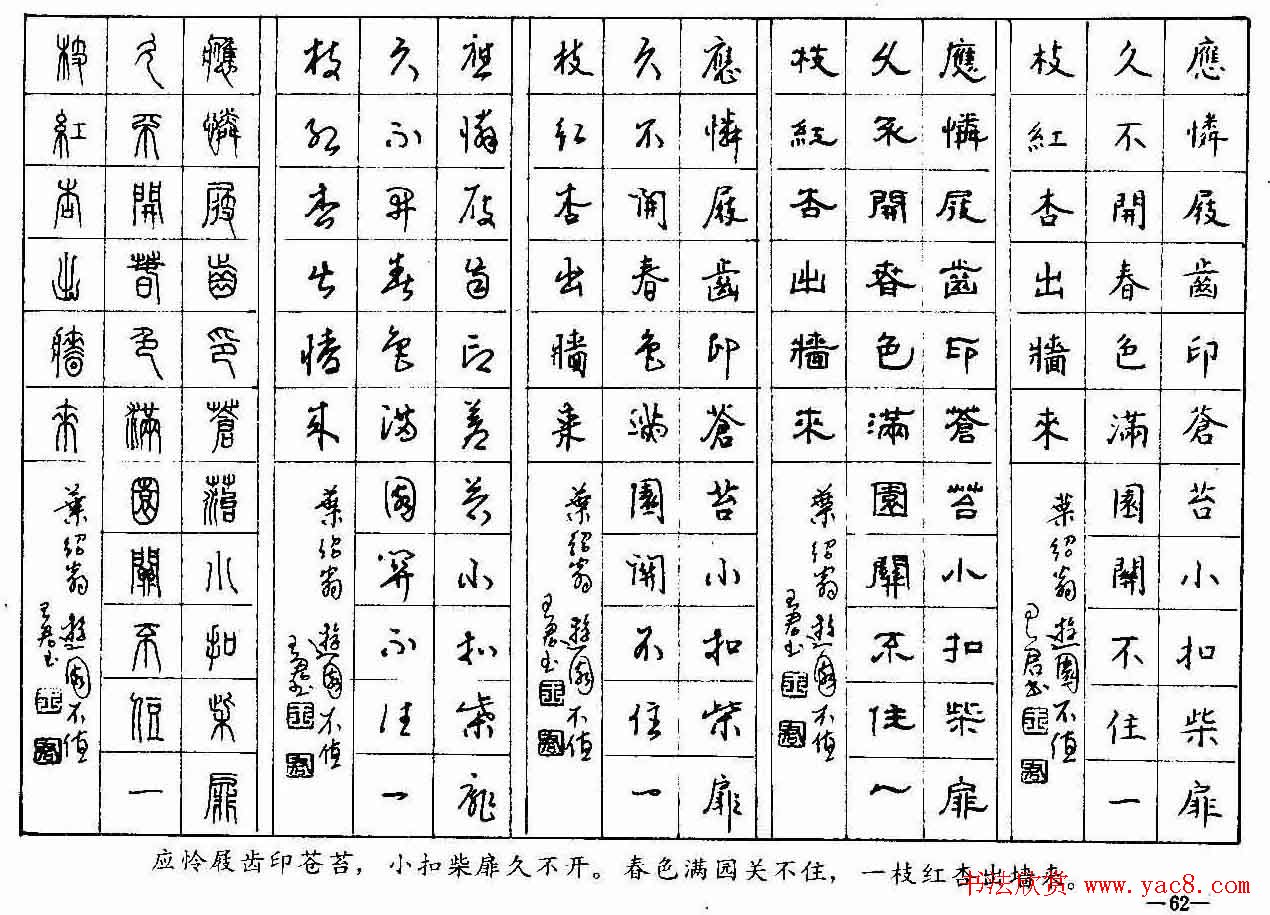 應憐屐齒印蒼苔小扣柴扉
久不開春色滿園關不住一
枝紅杏出牆來
葉紹翁 遊園不值
應憐屐齒印蒼苔小扣柴扉
久不開春色滿園關不住一
枝紅杏出牆來
葉紹翁 遊園不值
應憐屐齒印蒼苔小扣柴扉
久不開春色滿園關不住一
枝紅杏出牆來
葉紹翁 遊園不值
應憐屐齒印蒼苔小扣柴扉
久不開春色滿園關不住一
枝紅杏出牆來
葉紹翁 遊園不值
應憐屐齒印蒼苔小扣柴扉
久不開春色滿園關不住一
枝紅杏出牆來
葉紹翁 遊園不值
应怜屐齿印苍苔，小扣柴扉久不开。春色满园关不住，一枝红杏出墙来。
书法欣赏 www.yac8.com
—62—